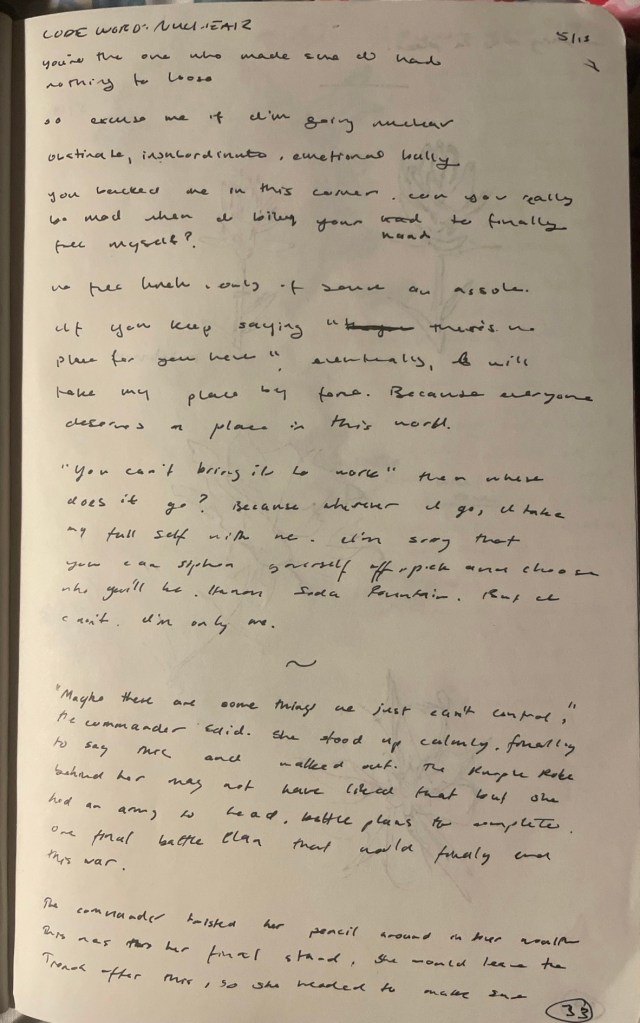 CODE WORD: NUCLEAR
5/13
you're the one who made sure I had
nothing to loose
so excuse me if I'm going nuclear
obstinate, insubordinate, emotional bully
you backed me in this corner. can you really
be mad when I bite your to finally
hand
free myself?
no free lunch, only if an assole.
If you keep saying " there's no
place for you here", eventually, I will
take my place by force. Because everyone
deserves a place in this world.
"You can't bring it to work" then where
does it go? Because wherever I go, I take
my full self with me. I'm sorry that
you can siphon yourself off & pick and choose
who you'll be. Human Soda Fountain. But I
can't. I'm only me.
~
"Maybe there are some things we just can't control,"
the commander said. She stood up calmly, finally
to say and walked out. The
behind her may not have liked that but she
had an army to lead, battle plans to complete.
one final battle plan that would finally end
this war.
The commander twisted her pencil around in her mouth
This was her final stand, she would leave the
Trench after this, so she needed to make sure
33